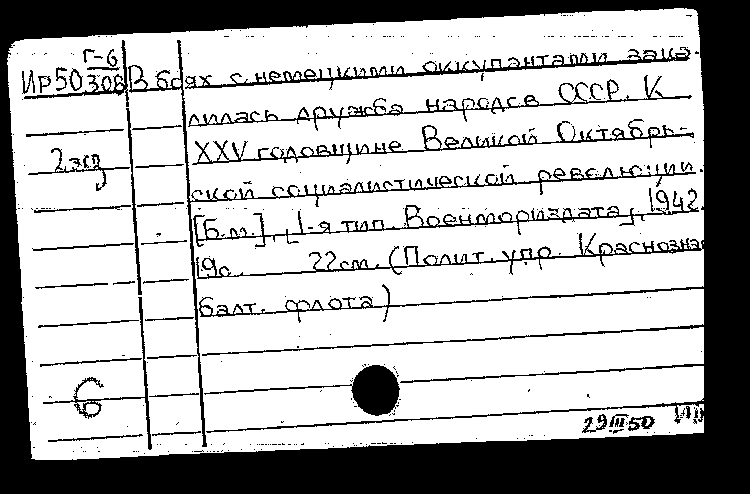 Г-6
ИР50 308 В боях с немецкими оккупантами зака-
лилась дружба народов СССР. К
2 экз XXV годовщине Великой Октябрь-
ской социалистической революции.
[Б.м.], [1-я тип. Военмориздата], 1942.
19с. 22см. (Полит. упр. Краснозна
балт. флота)
6
29 III 50